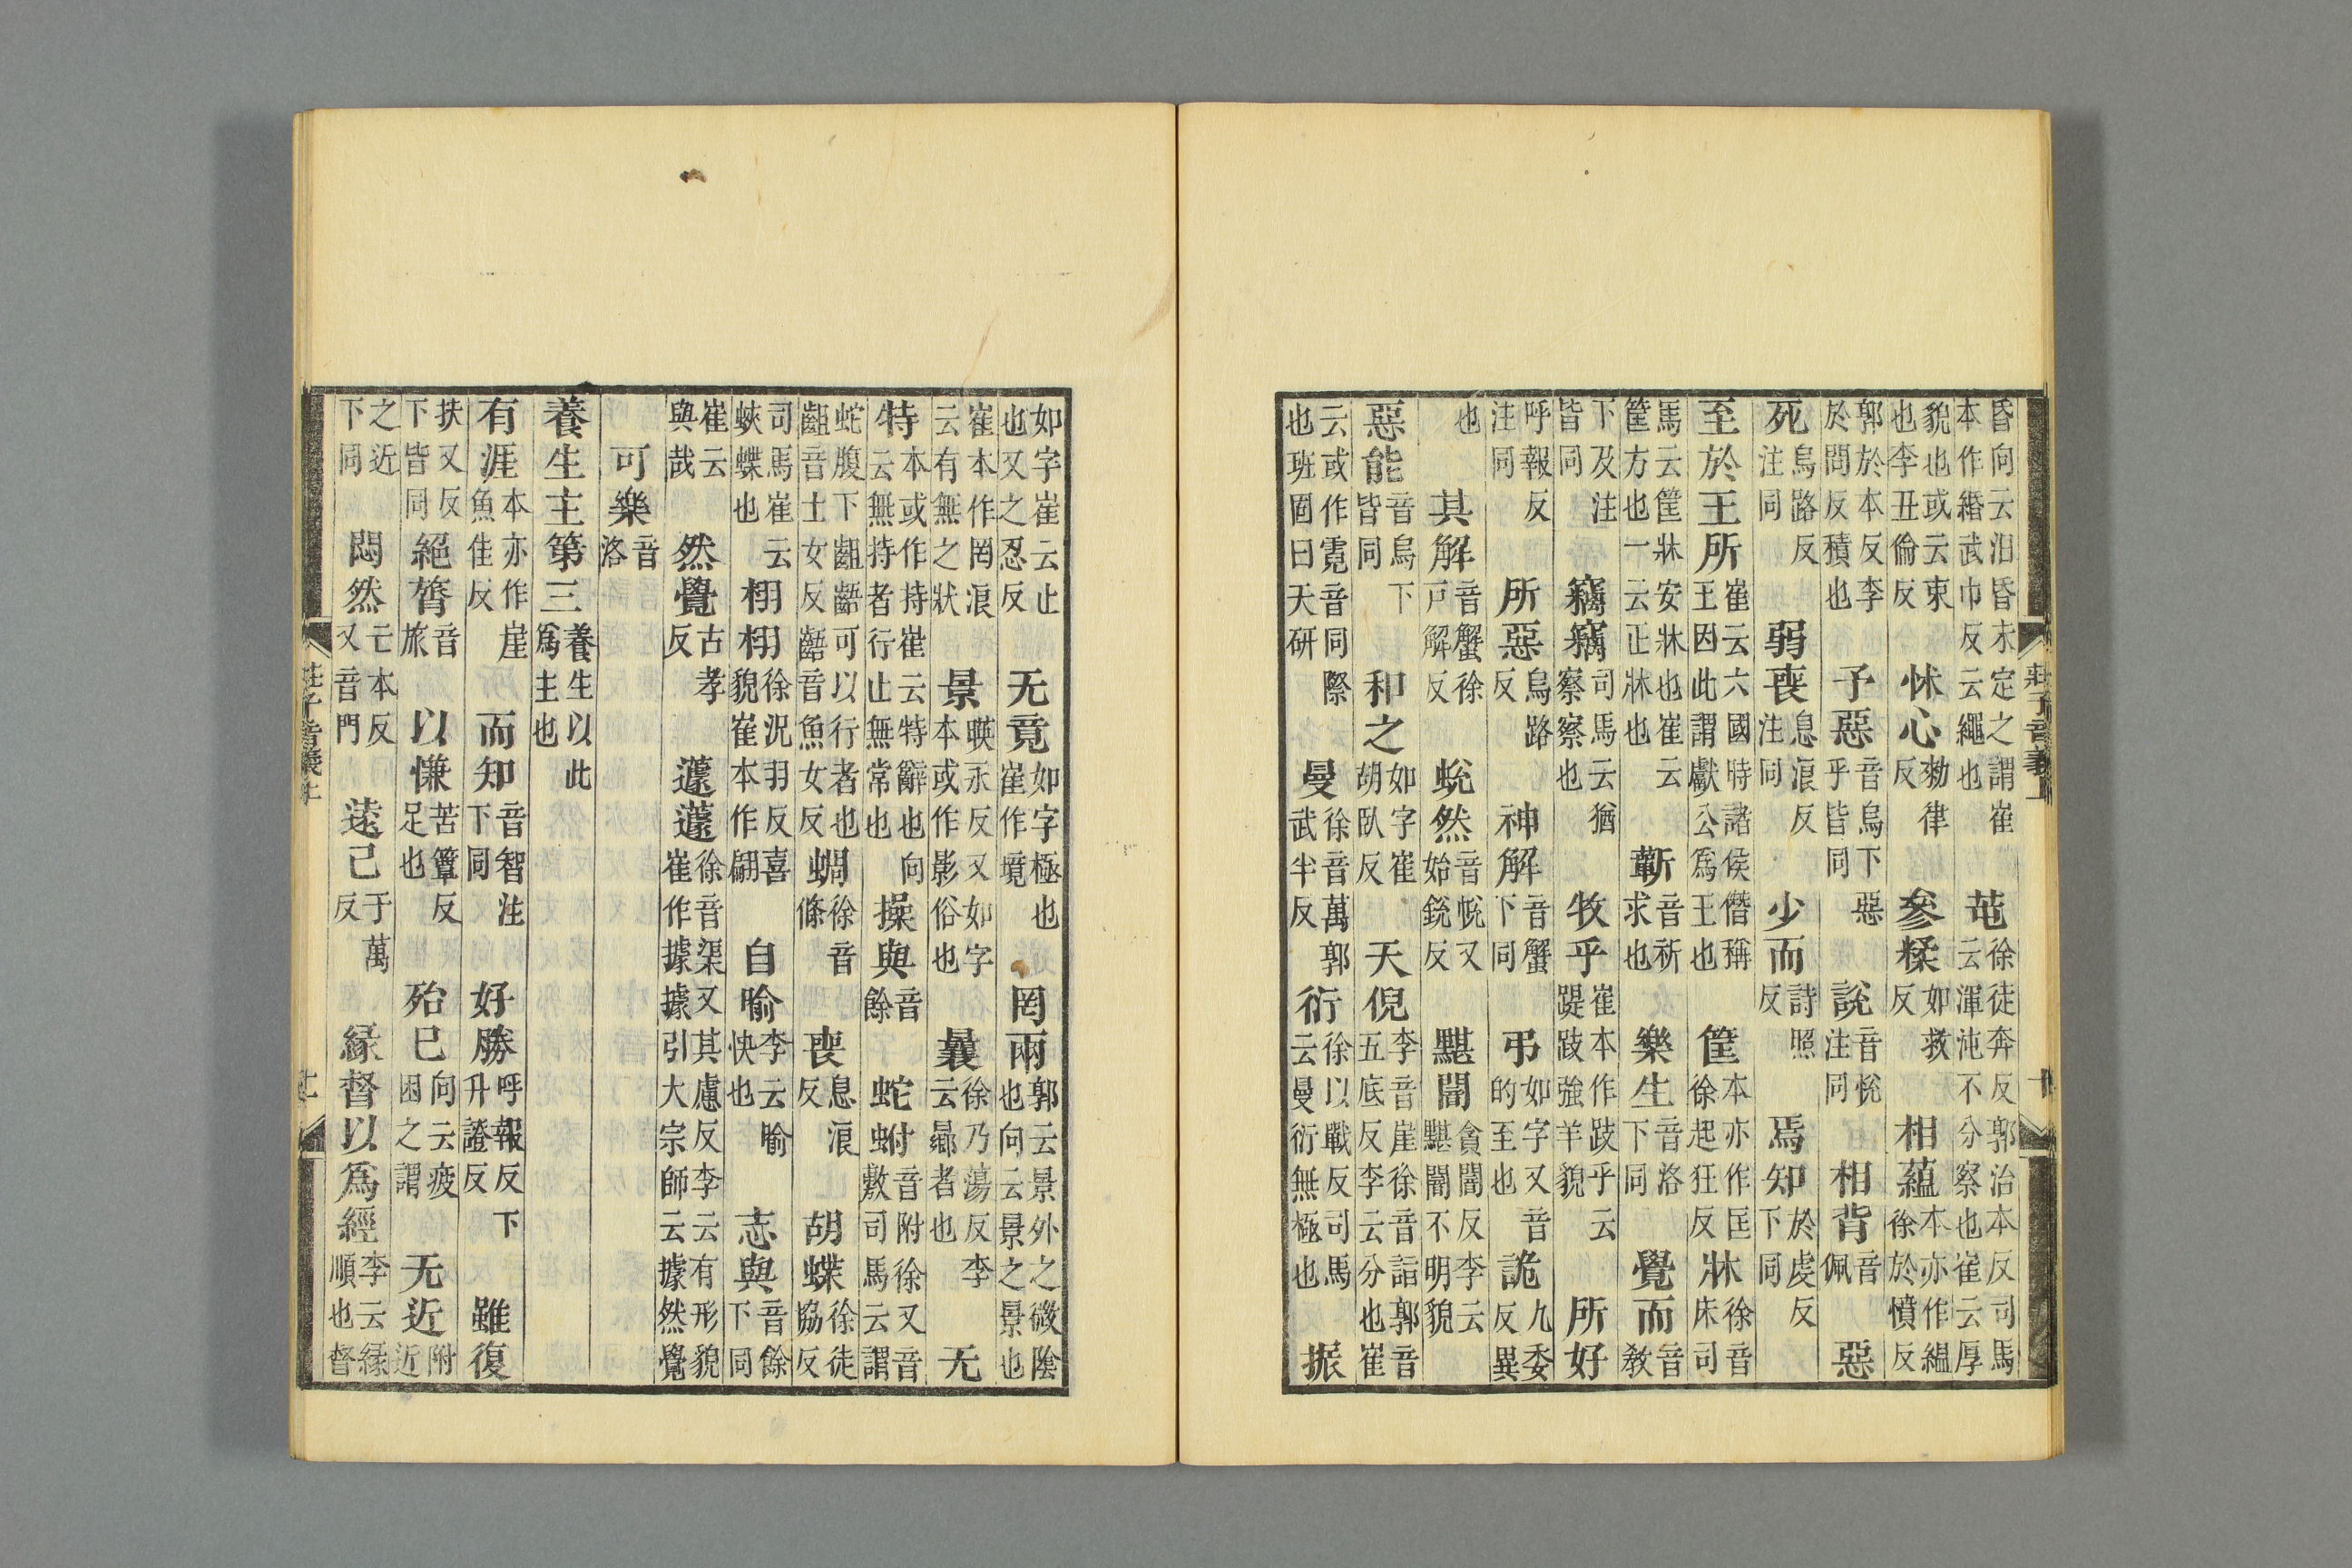 莊子音義上 十
昏向云汨昏未定之謂崔本作緡武巾反云繩也 芚 徐徒奔反郭治本反司馬云渾沌不分察也崔云厚
貌也或云束也李丑倫反 怵心 勑律反 參糅 如救反 相蘊 本亦作縕徐於憤反
郭於本反李於問反積也 予惡 音烏下惡乎皆同 說 音悅注同 相背 音佩 惡
死 烏路反注同 弱喪 息浪反注同 少而 詩照反 焉知 於虔反下同
至於王所 崔云六國時諸侯僭稱王因此謂獻公爲王也 筐 本亦作匡徐起狂反 牀 徐音床司
馬云筐牀安牀也崔云筐方也一云正牀也 蘄 音祈求也 樂生 音洛下同 覺而 音敎
下及注皆同 竊竊 司馬云猶察察也 牧乎 崔本作跂乎云踶跂強羊貌 所好
呼報反注同 所惡 烏路反 神解 音蟹下同 弔 如字又音的至也 詭 九委反異
也 其解 音蟹徐戸解反 蛻然 音悅又始銳反 黮闇 貪闇反李云黮闇不明貌
惡能 音烏下皆同 和之 如字崔胡臥反 天倪 李音崖徐音詣郭音五底反李云分也崔
云或作霓音同際也班固曰天研 曼 徐音萬郭武半反 衍 徐以戰反司馬云曼衍無極也 振
如字崔云止也又之忍反 无竟 如字極也崔作境 罔兩 郭云景外之微陰也向云景之景也
崔本作罔浪云有無之狀 景 暎永反又如字本或作影俗也 曩 徐乃蕩反李云曏者也 无
特 本或作持崔云特辭也向云無持者行止無常也 操與 音餘 蛇蚹 音附徐又音敷司馬云謂
蛇腹下齟齬可以行者也齟音士女反齬音魚女反 蜩 徐音條 喪 息浪反 胡蝶 徐徒協反
司馬崔云蛺蝶也 栩栩 徐況羽反喜貌崔本作翩 自喻 李云喻快也 志與 音餘下同
崔云與哉 然覺 古孝反 蘧蘧 徐音渠又其慮反李云有形貌崔作據據引大宗師云據然覺
可樂 音洛
養生主第三 養生以此爲主也
有涯 本亦作崖魚佳反 而知 音智注下同 好勝 呼報反下升證反 雖復
扶又反下皆同 絕膂 音旅 以慊 苦簟反足也 殆已 向云疲困之謂 无近 附近
之近下同 悶然 亡本反又音門 遠己 于萬反 緣督以爲經 李云緣順也督
莊子音義上 十一